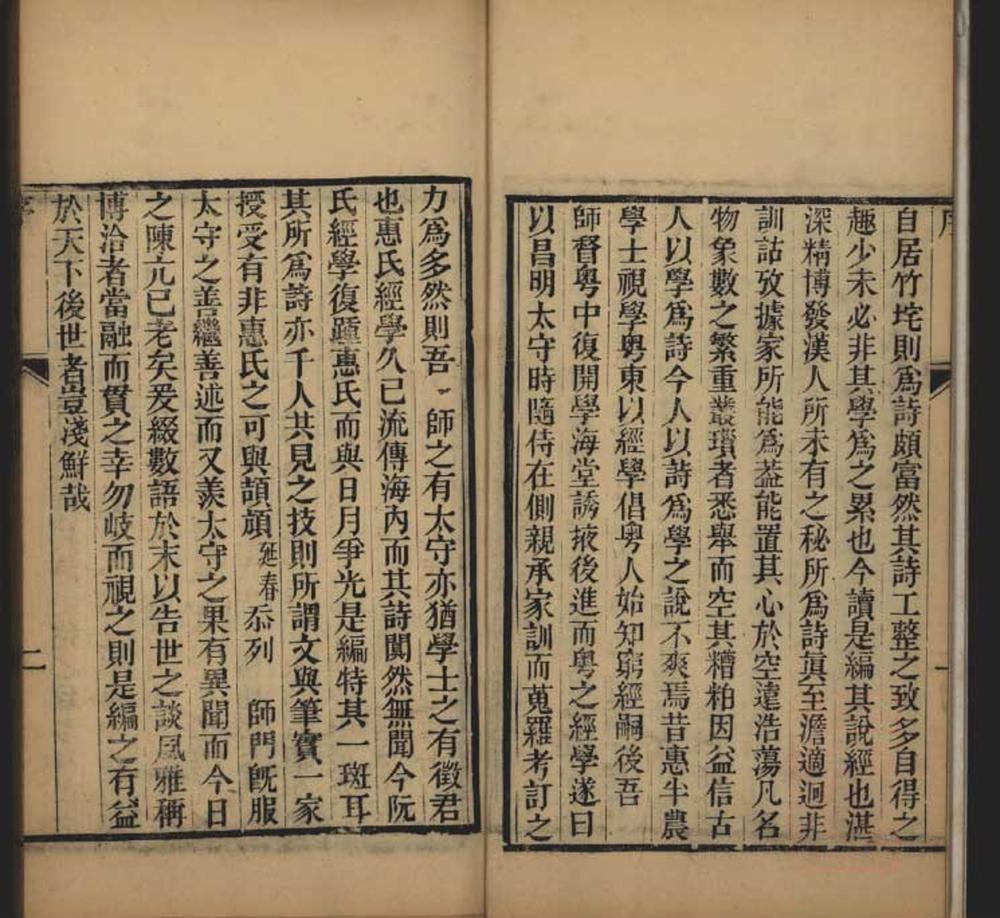 自居竹垞則爲詩頗富然其詩工整之致多自得之
趣少未必非其學爲之累也今讀是編其說經也湛
深精博發漢人所未有之秘所爲詩眞至澹適迥非
訓詁攷據家所能爲葢能置其心於空遠浩蕩凡名
物象數之繁重叢瑣者悉舉而空其糟粕因益信古
人以學爲詩今人以詩爲學之說不爽焉昔惠半農
學士視學粤東以經學倡粤人始知窮經嗣後吾
師督粤中復開學海堂誘掖後進而粤之經學遂日
以昌明太守時隨侍在側親承家訓而蒐羅考訂之
力爲多然則吾 師之有太守亦猶學士之有徵君
也惠氏經學久已流傳海內而其詩闃然無聞今阮
氏經學復踵惠氏而與日月爭光是編特其一斑耳
其所爲詩亦千人共見之技則所謂文與筆實一家
授受有非惠氏之可與頡頏延春忝列 師門旣服
太守之善繼善述而又羨太守之果有異聞而今日
之陳亢已老矣爰綴數語於末以告世之談風雅稱
博洽者當融而貫之幸勿岐而視之則是編之有益
於天下後世者豈淺鮮哉
二